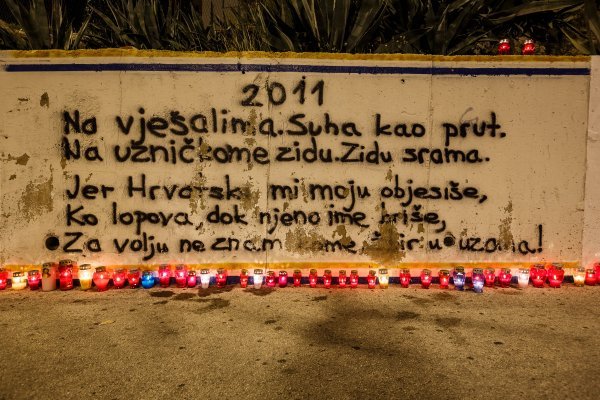 2011
Na vješalima. Suha kao prut.
Na uzničkome zidu. Zidu srama.
Jer Hrvatsku mi moju objesiše,
Ko lopova, dok njeno ime briše,
Za volju ne znam žbir u uzama!